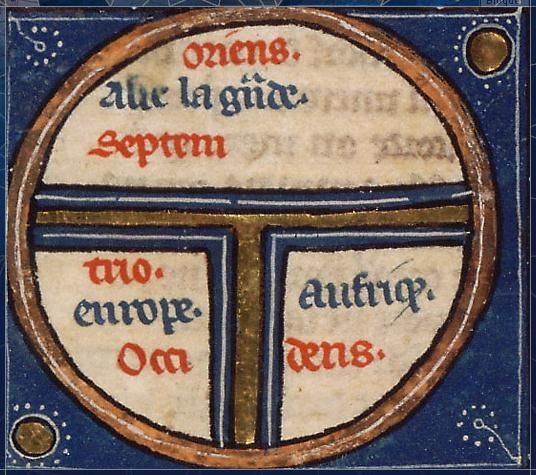 oriens.
Asie la gr̃de.
Septem
trio.
europe.
Occi
aufriqe.
dens.